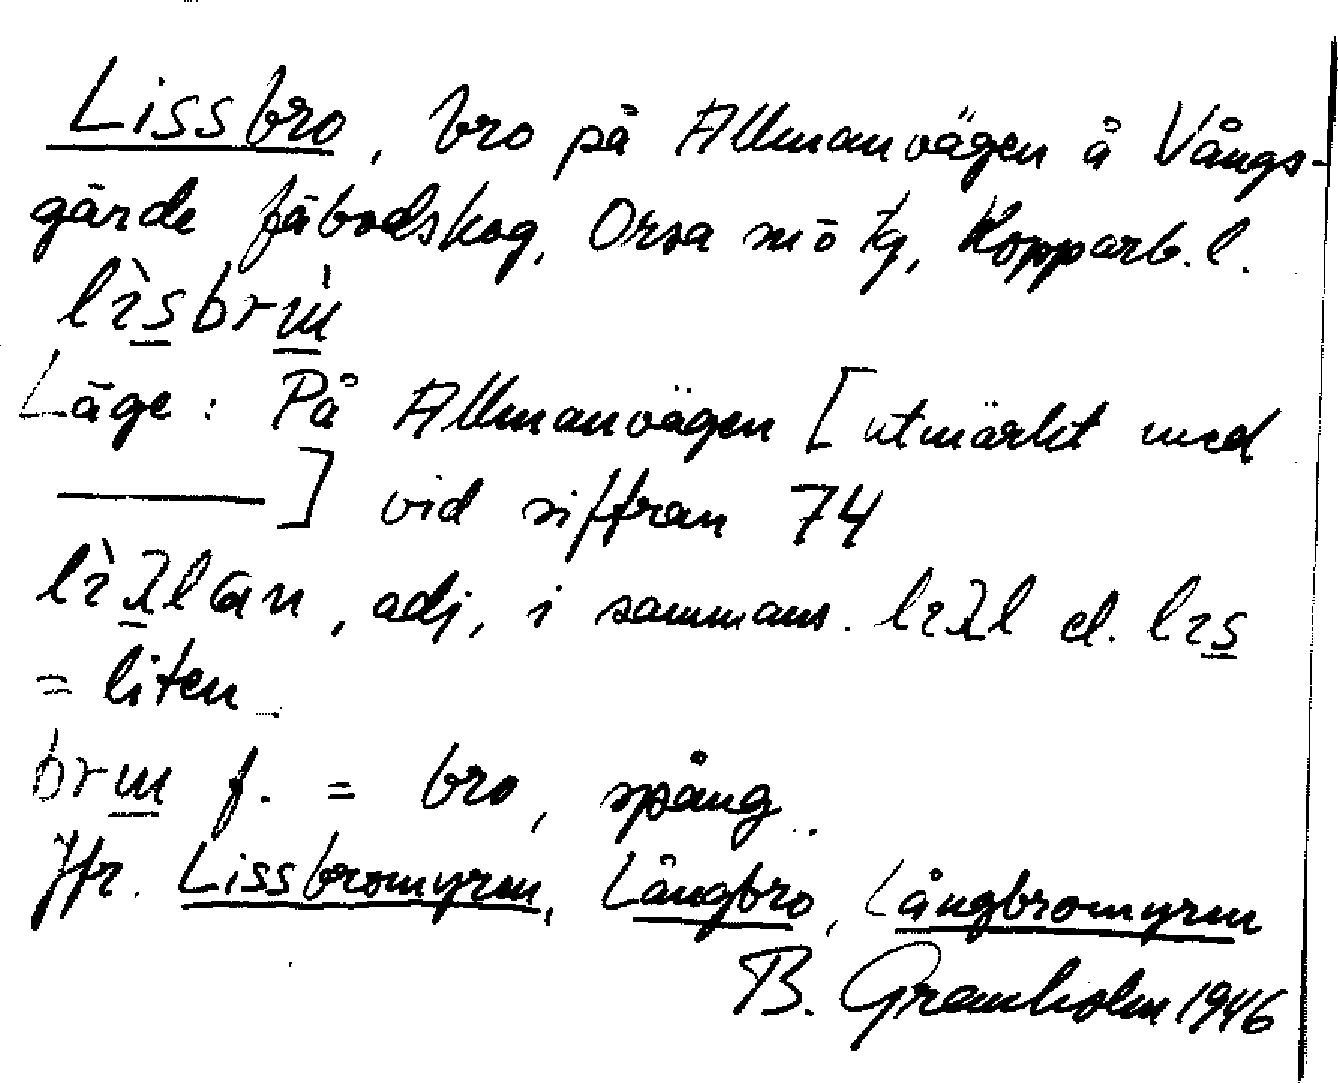 Lissbro, bro på Allmanvägen å Vångs-
gärde fäbodskog, Orsa sn ö tg, Kopparb. l.
Läge: På Allmanvägen [utmärkt med
———] vid siffran 74
adj, i sammans. el.
= liten
f. = bro, spång.
Jfr. Lissbromyren, Långbro, Långbromyren
B. Granholm 1946